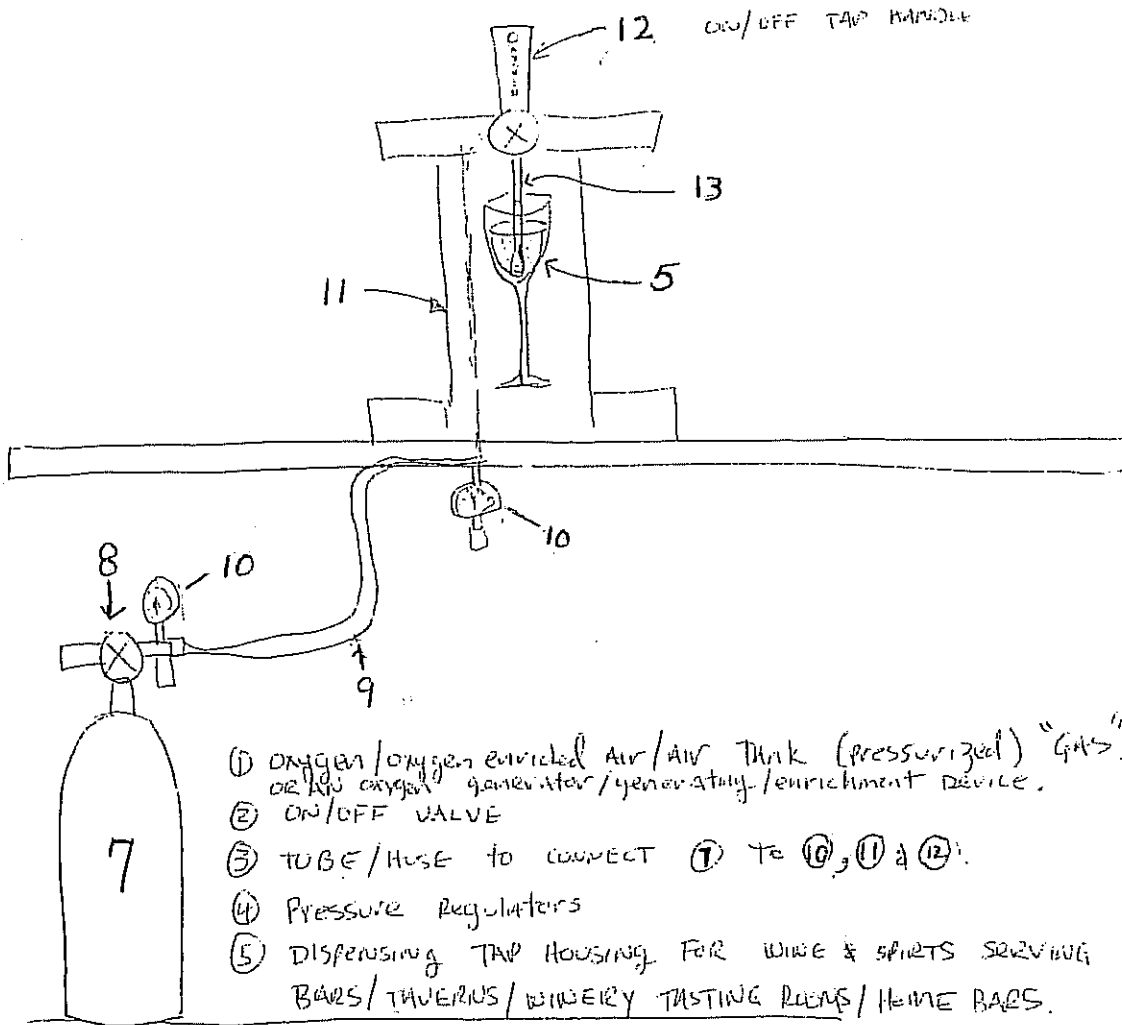 12 ON/OFF TAP HANDLE
13
5
11
10
10
8
9
7
① Oxygen/oxygen enriched Air/AIR TANK (pressurized) "GAS"
OR AN oxygen generator/generating/enrichment DEVICE.
② ON/OFF VALVE
③ TUBE/HOSE to CONNECT ⑦ TO ⑩, ⑪ & ⑫.
④ Pressure Regulators
⑤ DISPENSING TAP HOUSING FOR WINE & SPIRTS SERVING
BARS/TAVERNS/WINERY TASTING ROOMS/HOME BARS.